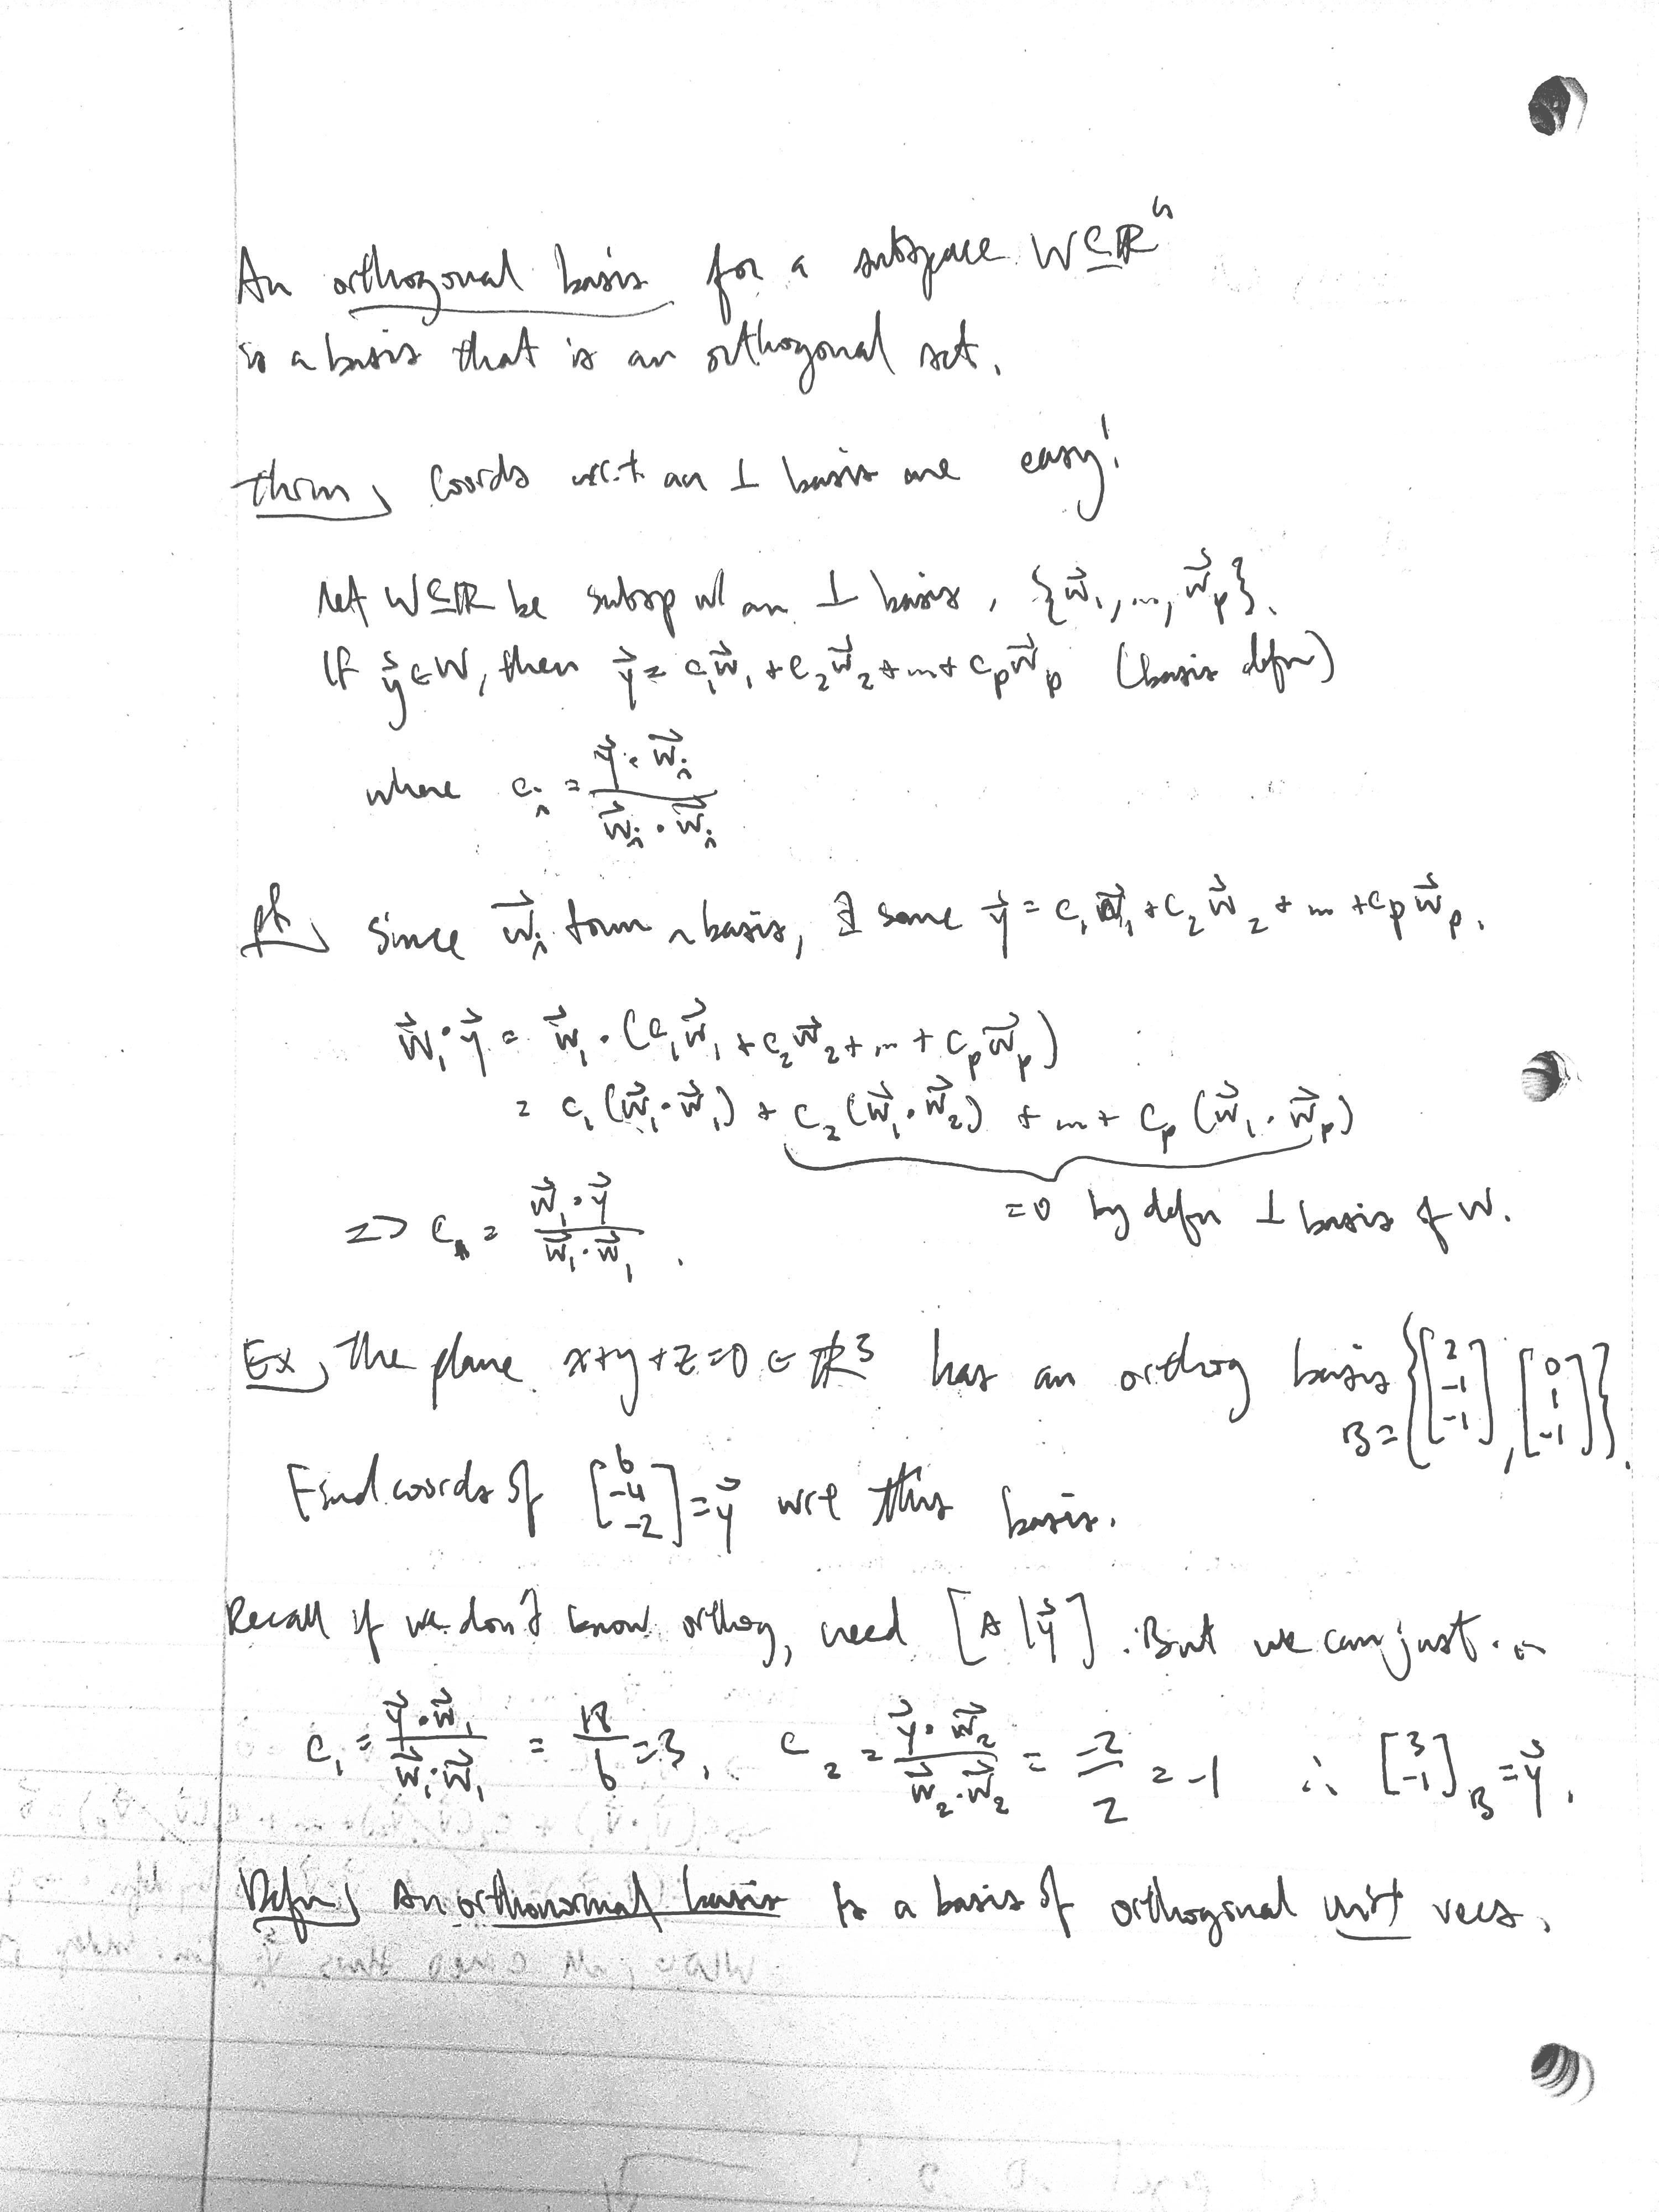 An orthogonal basis for a subspace W ⊆ ℝⁿ
is a basis that is an orthogonal set.
thm, Coords wr.t an ⊥ basis are easy!
Let W ⊆ ℝ be subsp w/ an ⊥ basis, {w⃗₁, ..., w⃗ₚ}.
If y⃗ ∈ W, then y⃗ = c₁w⃗₁ + c₂w⃗₂ + ... + cₚw⃗ₚ (basis defn)
where cᵢ = (y⃗ · w⃗ᵢ)/(w⃗ᵢ · w⃗ᵢ)
pf, Since w⃗ᵢ form a basis, ∃ some y⃗ = c₁w⃗₁ + c₂w⃗₂ + ... + cₚw⃗ₚ.
w⃗₁ · y⃗ = w⃗₁ · (c₁w⃗₁ + c₂w⃗₂ + ... + cₚw⃗ₚ)
= c₁(w⃗₁ · w⃗₁) + c₂(w⃗₁ · w⃗₂) + ... + cₚ(w⃗₁ · w⃗ₚ)
=> c₁ = (w⃗₁ · y⃗)/(w⃗₁ · w⃗₁). =0 by defn ⊥ basis of W.
Ex, The plane x+y+z=0 ∈ ℝ³ has an orthog basis B = {[2 -1 -1], [0 1 -1]}.
Find coords of [6 -4 -2] = y⃗ wrt this basis.
Recall if we don't know orthog, need [A | y⃗]. But we can just...
c₁ = (y⃗ · w⃗₁)/(w⃗₁ · w⃗₁) = 18/6 = 3, c₂ = (y⃗ · w⃗₂)/(w⃗₂ · w⃗₂) = -2/2 = -1 ∴ [3 -1]_B = y⃗.
Defn, An orthonormal basis is a basis of orthogonal unit vecs.